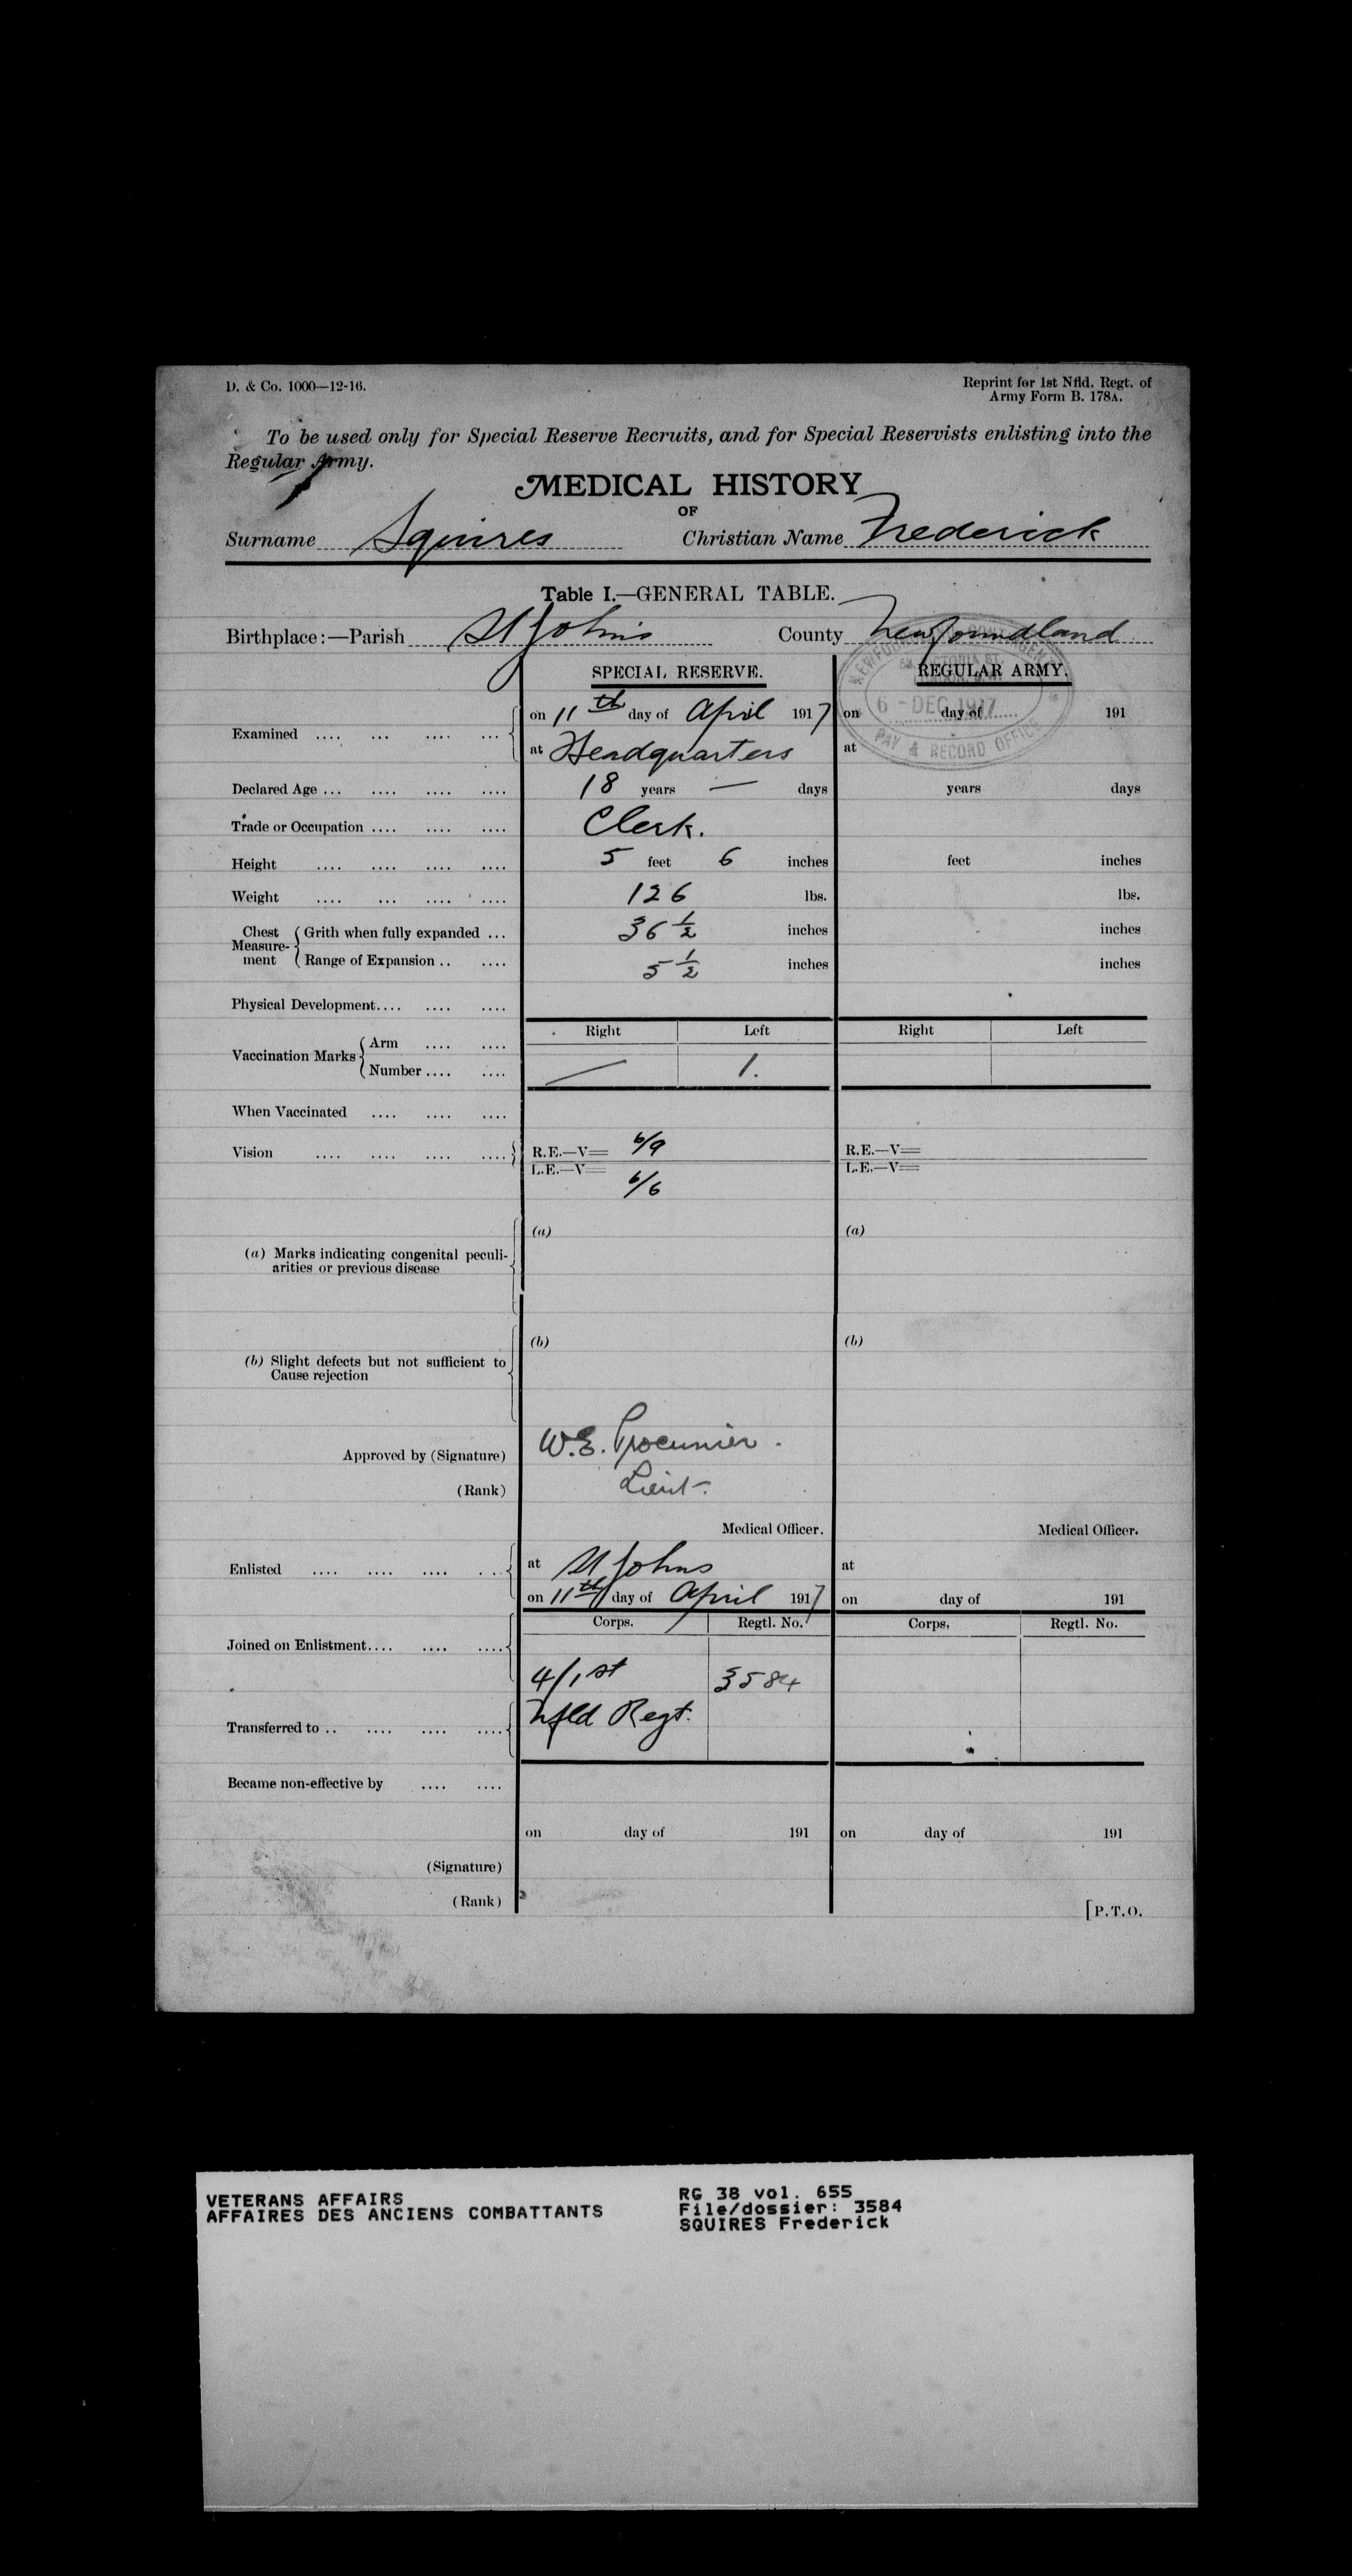 D. & Co. 1000—12-16.
Reprint for 1st Nfld. Regt. of
Army Form B. 178A.
To be used only for Special Reserve Recruits, and for Special Reservists enlisting into the
Regular Army.
MEDICAL HISTORY
OF
Surname Squires Christian Name Frederick
Table I.—GENERAL TABLE.
Birthplace:—Parish St Johns County Newfoundland
SPECIAL RESERVE. REGULAR ARMY.
6 - DEC 1917
PAY & RECORD OFFICE
Examined .... ... .... ... on 11th day of April 1917 on day of 191
at Headquarters at
Declared Age ... .... .... .... 18 years — days years days
Trade or Occupation .... .... .... Clerk.
Height .... .... .... .... 5 feet 6 inches feet inches
Weight .... ... .... .... 126 lbs. lbs.
Chest Measure-ment Grith when fully expanded ... 36 1/2 inches inches
Range of Expansion .. .... 5 1/2 inches inches
Physical Development.... .... ....
Right Left Right Left
Vaccination Marks Arm .... ....
Number .... .... — 1.
When Vaccinated .... .... ....
Vision .... .... .... .... R.E.—V= 6/9 R.E.—V=
L.E.—V= 6/6 L.E.—V=
(a) (a)
(a) Marks indicating congenital peculi-
arities or previous disease
(b) (b)
(b) Slight defects but not sufficient to
Cause rejection
Approved by (Signature) W.E. Procunier.
(Rank) Lieut-.
Medical Officer. Medical Officer.
Enlisted .... .... .... .. at St Johns at
on 11th day of April 1917 on day of 191
Corps. Regtl. No. Corps. Regtl. No.
Joined on Enlistment.... .... ....
4/1st 3584
Nfld Regt.
Transferred to .. .... .... ....
Became non-effective by .... ....
on day of 191 on day of 191
(Signature)
(Rank)
[P.T.O.
VETERANS AFFAIRS
AFFAIRES DES ANCIENS COMBATTANTS
RG 38 vol. 655
File/dossier: 3584
SQUIRES Frederick